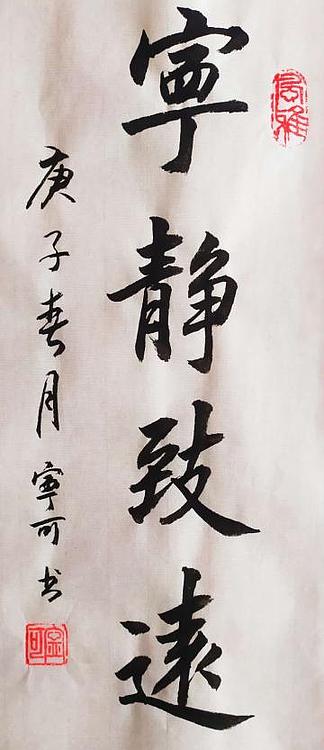 寧靜致遠
庚子春月寧可书
寧可